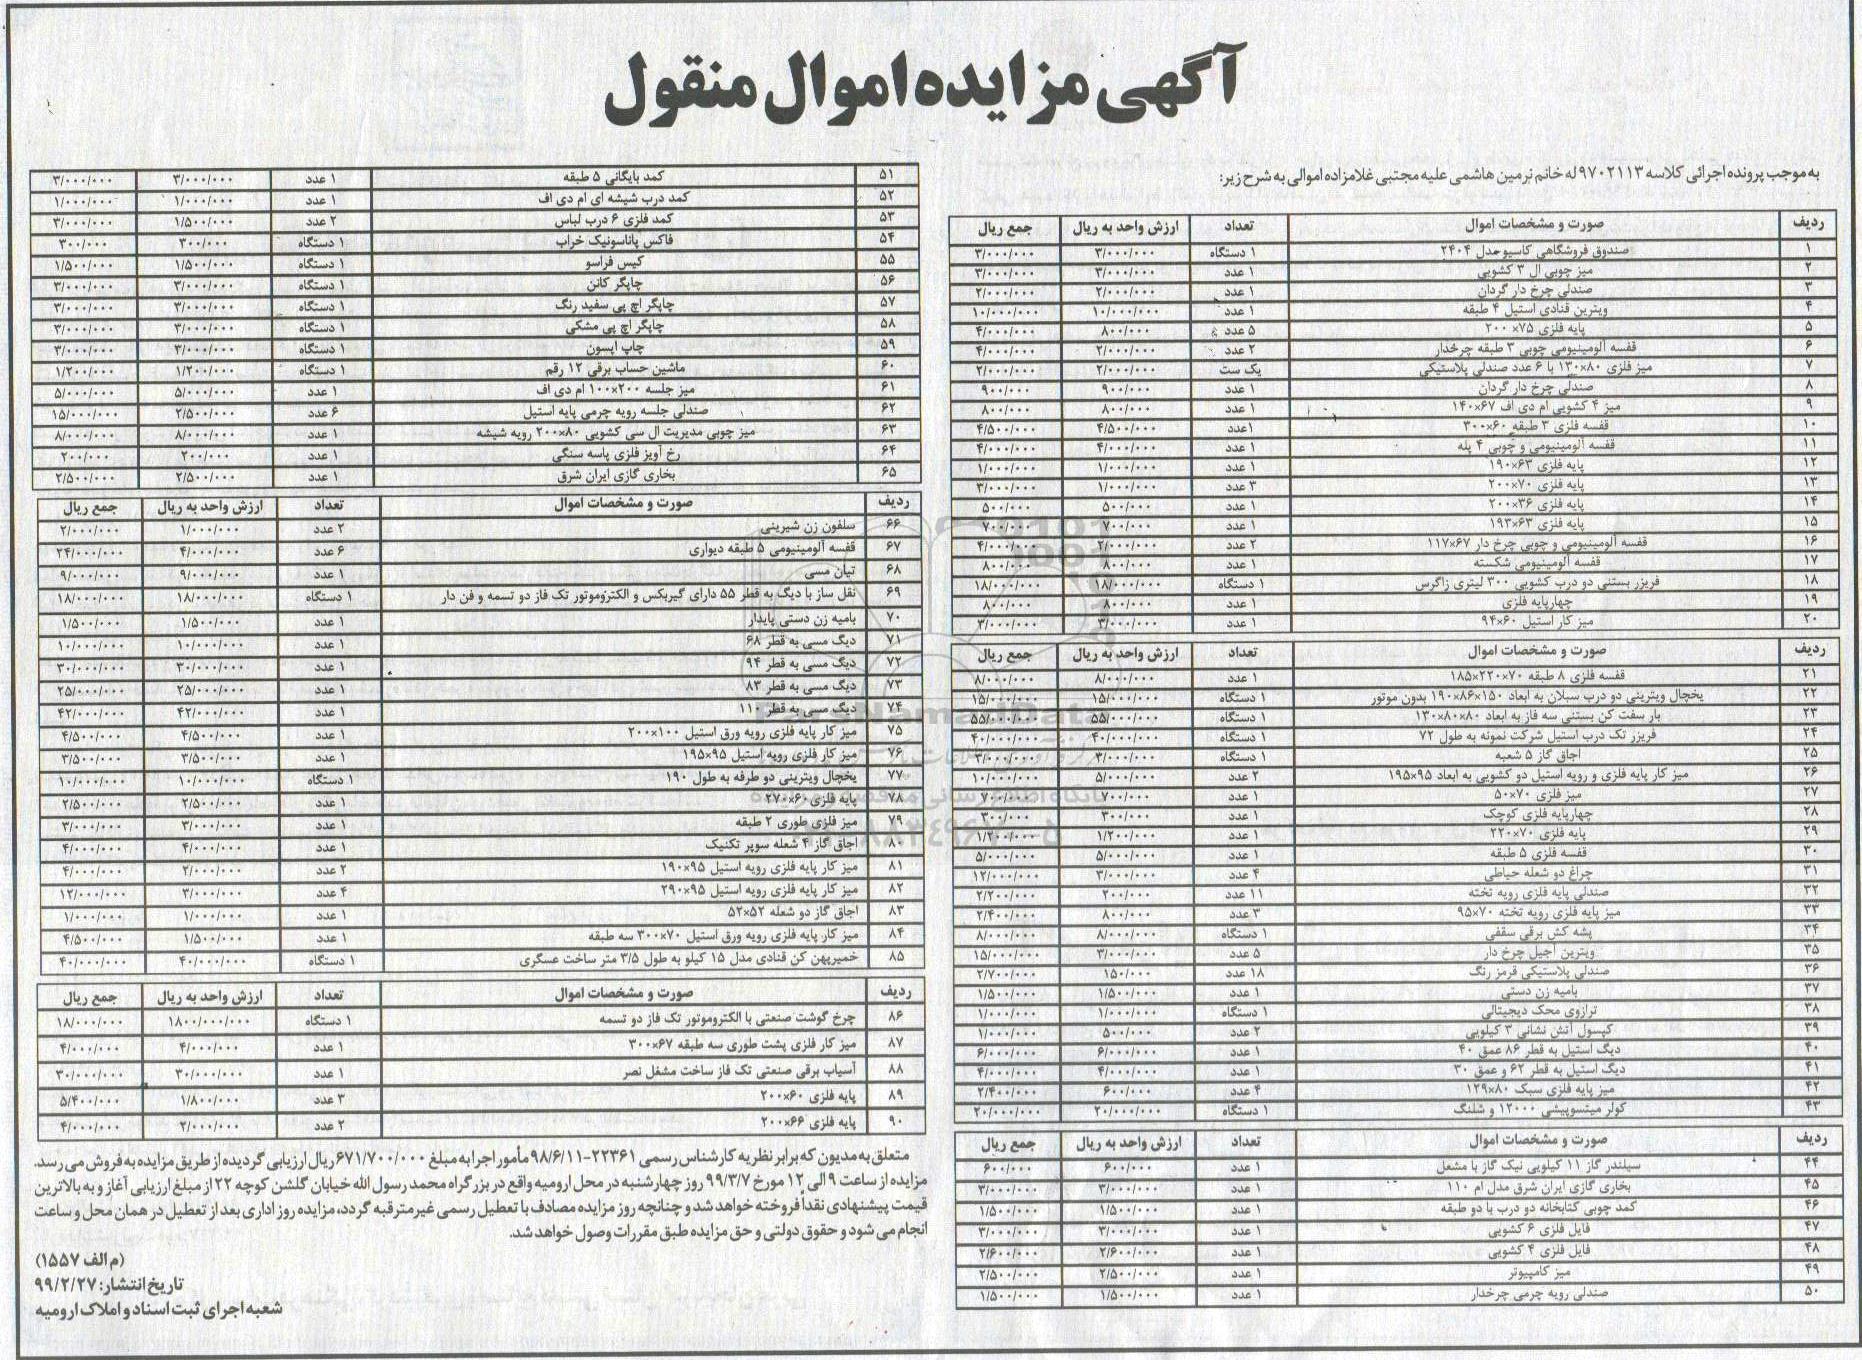 آگهی مزایده اموال منقول
به موجب پرونده اجرائی کلاسه ۹۷۰۲۱۱۳ له خانم نرمین هاشمی علیه مجتبی غلامزاده اموالی به شرح زیر:
ردیف صورت و مشخصات اموال تعداد ارزش واحد به ریال جمع ریال
۱ صندوق فروشگاهی کاسیو مدل ۲۴۰۴ ۱ دستگاه ۳/۰۰۰/۰۰۰ ۳/۰۰۰/۰۰۰
۲ میز چوبی ال ۳ کشویی ۱ عدد ۳/۰۰۰/۰۰۰ ۳/۰۰۰/۰۰۰
۳ صندلی چرخ دار گردان ۱ عدد ۲/۰۰۰/۰۰۰ ۲/۰۰۰/۰۰۰
۴ ویترین قنادی استیل ۴ طبقه ۱ عدد ۱۰/۰۰۰/۰۰۰ ۱۰/۰۰۰/۰۰۰
۵ پایه فلزی ۷۵×۲۰۰ ۵ عدد ۸۰۰/۰۰۰ ۴/۰۰۰/۰۰۰
۶ قفسه آلومینیومی چوبی ۳ طبقه چرخدار ۲ عدد ۲/۰۰۰/۰۰۰ ۴/۰۰۰/۰۰۰
۷ میز فلزی ۸۰×۱۳۰ با ۶ عدد صندلی پلاستیکی یک ست ۲/۰۰۰/۰۰۰ ۲/۰۰۰/۰۰۰
۸ صندلی چرخ دار گردان ۱ عدد ۹۰۰/۰۰۰ ۹۰۰/۰۰۰
۹ میز ۴ کشویی ام دی اف ۶۷×۱۴۰ ۱ عدد ۸۰۰/۰۰۰ ۸۰۰/۰۰۰
۱۰ قفسه فلزی ۳ طبقه ۶۰×۳۰۰ ۱عدد ۴/۵۰۰/۰۰۰ ۴/۵۰۰/۰۰۰
۱۱ قفسه آلومینیومی و چوبی ۴ پله ۱ عدد ۴/۰۰۰/۰۰۰ ۴/۰۰۰/۰۰۰
۱۲ پایه فلزی ۶۳×۱۹۰ ۱ عدد ۱/۰۰۰/۰۰۰ ۱/۰۰۰/۰۰۰
۱۳ پایه فلزی ۷۰×۲۰۰ ۳ عدد ۱/۰۰۰/۰۰۰ ۳/۰۰۰/۰۰۰
۱۴ پایه فلزی ۳۶×۲۰۰ ۱ عدد ۵۰۰/۰۰۰ ۵۰۰/۰۰۰
۱۵ پایه فلزی ۶۳×۱۹۳ ۱ عدد ۷۰۰/۰۰۰ ۷۰۰/۰۰۰
۱۶ قفسه آلومینیومی و چوبی چرخ دار ۶۷×۱۱۷ ۲ عدد ۲/۰۰۰/۰۰۰ ۴/۰۰۰/۰۰۰
۱۷ قفسه آلومینیومی شکسته ۱ عدد ۸۰۰/۰۰۰ ۸۰۰/۰۰۰
۱۸ فریزر بستنی دو درب کشویی ۳۰۰ لیتری زاگرس ۱ دستگاه ۱۸/۰۰۰/۰۰۰ ۱۸/۰۰۰/۰۰۰
۱۹ چهارپایه فلزی ۱ عدد ۸۰۰/۰۰۰ ۸۰۰/۰۰۰
۲۰ میز کار استیل ۶۰×۹۴ ۱ عدد ۳/۰۰۰/۰۰۰ ۳/۰۰۰/۰۰۰
ردیف صورت و مشخصات اموال تعداد ارزش واحد به ریال جمع ریال
۲۱ قفسه فلزی ۸ طبقه ۷۰×۲۲۰×۱۸۵ ۱ عدد ۸/۰۰۰/۰۰۰ ۸/۰۰۰/۰۰۰
۲۲ یخچال ویترینی دو درب سبلان به ابعاد ۱۵۰×۸۶×۱۹۰ بدون موتور ۱ دستگاه ۱۵/۰۰۰/۰۰۰ ۱۵/۰۰۰/۰۰۰
۲۳ بار سفت کن بستنی سه فاز به ابعاد ۸۰×۸۰×۱۳۰ ۱ دستگاه ۵۵/۰۰۰/۰۰۰ ۵۵/۰۰۰/۰۰۰
۲۴ فریزر تک درب استیل شرکت نمونه به طول ۷۲ ۱ دستگاه ۴۰/۰۰۰/۰۰۰ ۴۰/۰۰۰/۰۰۰
۲۵ اجاق گاز ۵ شعبه ۱ دستگاه ۳/۰۰۰/۰۰۰ ۳/۰۰۰/۰۰۰
۲۶ میز کار پایه فلزی و رویه استیل دو کشویی به ابعاد ۹۵×۱۹۵ ۲ عدد ۵/۰۰۰/۰۰۰ ۱۰/۰۰۰/۰۰۰
۲۷ میز فلزی ۷۰×۵۰ ۱ عدد ۷۰۰/۰۰۰ ۷۰۰/۰۰۰
۲۸ چهارپایه فلزی کوچک ۱ عدد ۳۰۰/۰۰۰ ۳۰۰/۰۰۰
۲۹ پایه فلزی ۷۰×۲۲۰ ۱ عدد ۱/۲۰۰/۰۰۰ ۱/۲۰۰/۰۰۰
۳۰ قفسه فلزی ۵ طبقه ۱ عدد ۵/۰۰۰/۰۰۰ ۵/۰۰۰/۰۰۰
۳۱ چراغ دو شعله حیاطی ۴ عدد ۳/۰۰۰/۰۰۰ ۱۲/۰۰۰/۰۰۰
۳۲ صندلی پایه فلزی رویه تخته ۱۱ عدد ۲۰۰/۰۰۰ ۲/۲۰۰/۰۰۰
۳۳ میز پایه فلزی رویه تخته ۷۰×۹۵ ۳ عدد ۸۰۰/۰۰۰ ۲/۴۰۰/۰۰۰
۳۴ پشه کش برقی سقفی ۱ دستگاه ۸/۰۰۰/۰۰۰ ۸/۰۰۰/۰۰۰
۳۵ ویترین آجیل چرخ دار ۵ عدد ۳/۰۰۰/۰۰۰ ۱۵/۰۰۰/۰۰۰
۳۶ صندلی پلاستیکی قرمز رنگ ۱۸ عدد ۱۵۰/۰۰۰ ۲/۷۰۰/۰۰۰
۳۷ بامیه زن دستی ۱ عدد ۱/۵۰۰/۰۰۰ ۱/۵۰۰/۰۰۰
۳۸ ترازوی محک دیجیتالی ۱ دستگاه ۱/۰۰۰/۰۰۰ ۱/۰۰۰/۰۰۰
۳۹ کپسول آتش نشانی ۳ کیلویی ۲ عدد ۵۰۰/۰۰۰ ۱/۰۰۰/۰۰۰
۴۰ دیگ استیل به قطر ۸۶ عمق ۴۰ ۱ عدد ۶/۰۰۰/۰۰۰ ۶/۰۰۰/۰۰۰
۴۱ دیگ استیل به قطر ۶۲ و عمق ۳۰ ۱ عدد ۴/۰۰۰/۰۰۰ ۴/۰۰۰/۰۰۰
۴۲ میز پایه فلزی سبک ۸۰×۱۲۹ ۴ عدد ۶۰۰/۰۰۰ ۲/۴۰۰/۰۰۰
۴۳ کولر میتسوبیشی ۱۲۰۰۰ و شلنگ ۱ دستگاه ۲۰/۰۰۰/۰۰۰ ۲۰/۰۰۰/۰۰۰
ردیف صورت و مشخصات اموال تعداد ارزش واحد به ریال جمع ریال
۴۴ سیلندر گاز ۱۱ کیلویی نیک گاز با مشعل ۱ عدد ۶۰۰/۰۰۰ ۶۰۰/۰۰۰
۴۵ بخاری گازی ایران شرق مدل ام ۱۱۰ ۱ عدد ۳/۰۰۰/۰۰۰ ۳/۰۰۰/۰۰۰
۴۶ کمد چوبی کتابخانه دو درب با دو طبقه ۱ عدد ۱/۵۰۰/۰۰۰ ۱/۵۰۰/۰۰۰
۴۷ فایل فلزی ۶ کشویی ۱ عدد ۳/۰۰۰/۰۰۰ ۳/۰۰۰/۰۰۰
۴۸ فایل فلزی ۴ کشویی ۱ عدد ۲/۶۰۰/۰۰۰ ۲/۶۰۰/۰۰۰
۴۹ میز کامپیوتر ۱ عدد ۲/۵۰۰/۰۰۰ ۲/۵۰۰/۰۰۰
۵۰ صندلی رویه چرمی چرخدار ۱ عدد ۱/۵۰۰/۰۰۰ ۱/۵۰۰/۰۰۰
۵۱ کمد بایگانی ۵ طبقه ۱ عدد ۳/۰۰۰/۰۰۰ ۳/۰۰۰/۰۰۰
۵۲ کمد درب شیشه ای ام دی اف ۱ عدد ۱/۰۰۰/۰۰۰ ۱/۰۰۰/۰۰۰
۵۳ کمد فلزی ۶ درب لباس ۲ عدد ۱/۵۰۰/۰۰۰ ۳/۰۰۰/۰۰۰
۵۴ فاکس پاناسونیک خراب ۱ دستگاه ۳۰۰/۰۰۰ ۳۰۰/۰۰۰
۵۵ کیس فراسو ۱ دستگاه ۱/۵۰۰/۰۰۰ ۱/۵۰۰/۰۰۰
۵۶ چاپگر کانن ۱ دستگاه ۳/۰۰۰/۰۰۰ ۳/۰۰۰/۰۰۰
۵۷ چاپگر اچ پی سفید رنگ ۱ دستگاه ۳/۰۰۰/۰۰۰ ۳/۰۰۰/۰۰۰
۵۸ چاپگر اچ پی مشکی ۱ دستگاه ۳/۰۰۰/۰۰۰ ۳/۰۰۰/۰۰۰
۵۹ چاپ اپسون ۱ دستگاه ۳/۰۰۰/۰۰۰ ۳/۰۰۰/۰۰۰
۶۰ ماشین حساب برقی ۱۲ رقم ۱ دستگاه ۱/۲۰۰/۰۰۰ ۱/۲۰۰/۰۰۰
۶۱ میز جلسه ۲۰۰×۱۰۰ ام دی اف ۱ عدد ۵/۰۰۰/۰۰۰ ۵/۰۰۰/۰۰۰
۶۲ صندلی جلسه رویه چرمی پایه استیل ۶ عدد ۲/۵۰۰/۰۰۰ ۱۵/۰۰۰/۰۰۰
۶۳ میز چوبی مدیریت ال سی کشویی ۸۰×۲۰۰ رویه شیشه ۱ عدد ۸/۰۰۰/۰۰۰ ۸/۰۰۰/۰۰۰
۶۴ رخ آویز فلزی پاسه سنگی ۱ عدد ۲۰۰/۰۰۰ ۲۰۰/۰۰۰
۶۵ بخاری گازی ایران شرق ۱ عدد ۲/۵۰۰/۰۰۰ ۲/۵۰۰/۰۰۰
ردیف صورت و مشخصات اموال تعداد ارزش واحد به ریال جمع ریال
۶۶ سلفون زن شیرینی ۲ عدد ۱/۰۰۰/۰۰۰ ۲/۰۰۰/۰۰۰
۶۷ قفسه آلومینیومی ۵ طبقه دیواری ۶ عدد ۴/۰۰۰/۰۰۰ ۲۴/۰۰۰/۰۰۰
۶۸ تیان مسی ۱ عدد ۹/۰۰۰/۰۰۰ ۹/۰۰۰/۰۰۰
۶۹ نقل ساز با دیگ به قطر ۵۵ دارای گیربکس و الکتروموتور تک فاز دو تسمه و فن دار ۱ دستگاه ۱۸/۰۰۰/۰۰۰ ۱۸/۰۰۰/۰۰۰
۷۰ بامیه زن دستی پایدار ۱ عدد ۱/۵۰۰/۰۰۰ ۱/۵۰۰/۰۰۰
۷۱ دیگ مسی به قطر ۶۸ ۱ عدد ۱۰/۰۰۰/۰۰۰ ۱۰/۰۰۰/۰۰۰
۷۲ دیگ مسی به قطر ۹۴ ۱ عدد ۳۰/۰۰۰/۰۰۰ ۳۰/۰۰۰/۰۰۰
۷۳ دیگ مسی به قطر ۸۳ ۱ عدد ۲۵/۰۰۰/۰۰۰ ۲۵/۰۰۰/۰۰۰
۷۴ دیگ مسی به قطر ۱۱۰ ۱ عدد ۴۲/۰۰۰/۰۰۰ ۴۲/۰۰۰/۰۰۰
۷۵ میز کار پایه فلزی رویه ورق استیل ۱۰۰×۲۰۰ ۱ عدد ۴/۵۰۰/۰۰۰ ۴/۵۰۰/۰۰۰
۷۶ میز کار فلزی رویه استیل ۹۵×۱۹۵ ۱ عدد ۳/۵۰۰/۰۰۰ ۳/۵۰۰/۰۰۰
۷۷ یخچال ویترینی دو طرفه به طول ۱۹۰ ۱ دستگاه ۱۰/۰۰۰/۰۰۰ ۱۰/۰۰۰/۰۰۰
۷۸ پایه فلزی ۶۰×۲۷۰ ۱ عدد ۲/۵۰۰/۰۰۰ ۲/۵۰۰/۰۰۰
۷۹ میز فلزی طوری ۲ طبقه ۱ عدد ۳/۰۰۰/۰۰۰ ۳/۰۰۰/۰۰۰
۸۰ اجاق گاز ۴ شعله سوپر تکنیک ۱ عدد ۴/۰۰۰/۰۰۰ ۴/۰۰۰/۰۰۰
۸۱ میز کار پایه فلزی رویه استیل ۹۵×۱۹۰ ۲ عدد ۲/۰۰۰/۰۰۰ ۴/۰۰۰/۰۰۰
۸۲ میز کار پایه فلزی رویه استیل ۹۵×۲۹۰ ۴ عدد ۳/۰۰۰/۰۰۰ ۱۲/۰۰۰/۰۰۰
۸۳ اجاق گاز دو شعله ۵۲×۵۲ ۱ عدد ۱/۰۰۰/۰۰۰ ۱/۰۰۰/۰۰۰
۸۴ میز کار پایه فلزی رویه ورق استیل ۷۰×۳۰۰ سه طبقه ۱ عدد ۱/۵۰۰/۰۰۰ ۴/۵۰۰/۰۰۰
۸۵ خمیرپهن کن قنادی مدل ۱۵ کیلو به طول ۳/۵ متر ساخت عسگری ۱ دستگاه ۴۰/۰۰۰/۰۰۰ ۴۰/۰۰۰/۰۰۰
ردیف صورت و مشخصات اموال تعداد ارزش واحد به ریال جمع ریال
۸۶ چرخ گوشت صنعتی با الکتروموتور تک فاز دو تسمه ۱ دستگاه ۱۸۰۰/۰۰۰/۰۰۰ ۱۸/۰۰۰/۰۰۰
۸۷ میز کار فلزی پشت طوری سه طبقه ۶۷×۳۰۰ ۱ عدد ۴/۰۰۰/۰۰۰ ۴/۰۰۰/۰۰۰
۸۸ آسیاب برقی صنعتی تک فاز ساخت مشغل نصر ۱ عدد ۳۰/۰۰۰/۰۰۰ ۳۰/۰۰۰/۰۰۰
۸۹ پایه فلزی ۶۰×۲۰۰ ۳ عدد ۱/۸۰۰/۰۰۰ ۵/۴۰۰/۰۰۰
۹۰ پایه فلزی ۶۶×۲۰۰ ۲ عدد ۲/۰۰۰/۰۰۰ ۴/۰۰۰/۰۰۰
متعلق به مدیون که برابر نظریه کارشناس رسمی ۲۲۳۶۱-۹۸/۶/۱۱ مأمور اجرا به مبلغ ۶۷۱/۷۰۰/۰۰۰ ریال ارزیابی گردیده از طریق مزایده به فروش می رسد.
مزایده از ساعت ۹ الی ۱۲ مورخ ۹۹/۳/۷ روز چهارشنبه در محل ارومیه واقع در بزرگراه محمد رسول الله خیابان گلشن کوچه ۲۲ از مبلغ ارزیابی آغاز و به بالاترین
قیمت پیشنهادی نقداً فروخته خواهد شد و چنانچه روز مزایده مصادف با تعطیل رسمی غیرمترقبه گردد، مزایده روز اداری بعد از تعطیل در همان محل و ساعت
انجام می شود و حقوق دولتی و حق مزایده طبق مقررات وصول خواهد شد.
(م الف ۱۵۵۷)
تاریخ انتشار: ۹۹/۲/۲۷
شعبه اجرای ثبت اسناد و املاک ارومیه
ParsNamadData